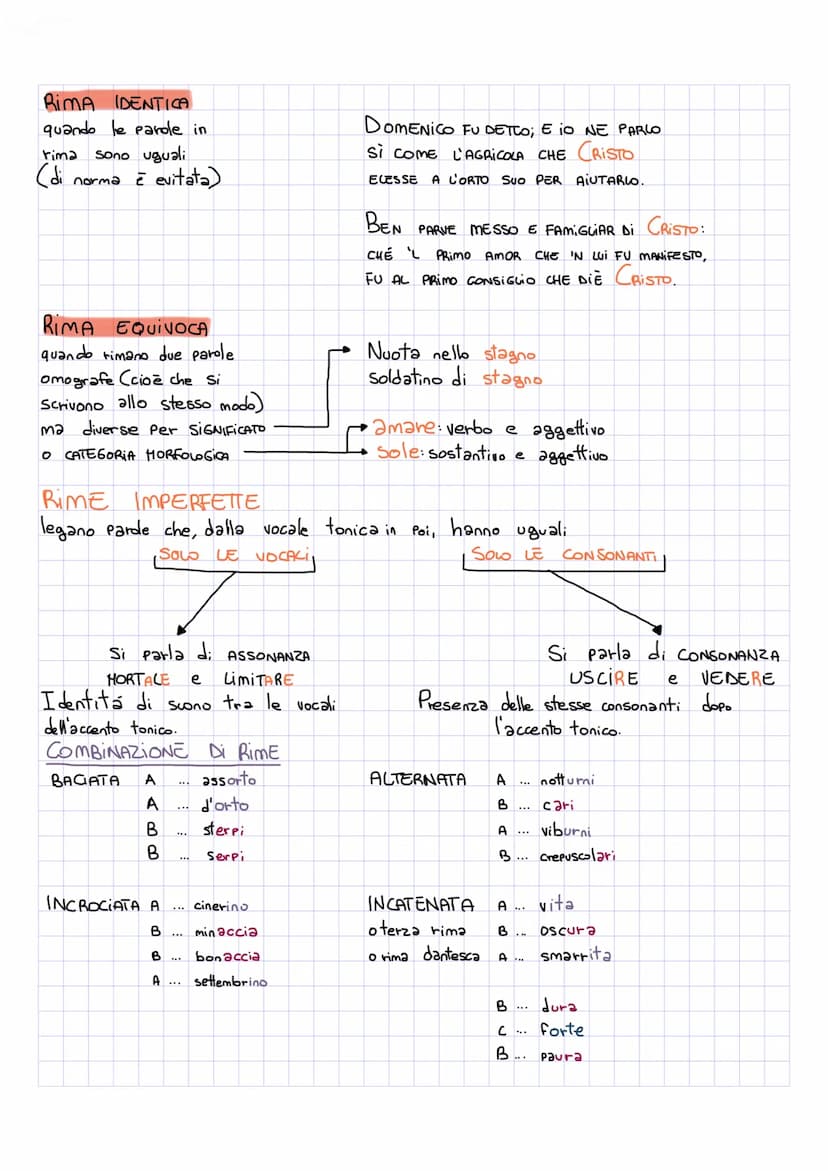 RIMA IDENTICA
quando le parole in
rima sono uguali
(di norma è evitata)
DOMENICO FU DETTO; E IO NE PARLO
SÌ COME L'AGRICOLA CHE CRISTO
ELESSE A L'ORTO SUO PER AIUTARLO.
BEN PARVE MESSO E FAMIGLIAR DI CRISTO:
CHÉ 'L PRIMO AMOR CHE 'N LUI FU MANIFESTO,
FU AL PRIMO CONSIGLIO CHE DIÈ CRISTO.
RIMA EQUIVOCA
quando rimano due parole
omografe (cioè che si
scrivono allo stesso modo)
ma diverse per SIGNIFICATO
o CATEGORIA MORFOLOGICA
Nuota nello stagno
soldatino di stagno
amare: verbo e aggettivo
sole: sostantivo e aggettivo
RIME IMPERFETTE
legano parole che, dalla vocale tonica in poi, hanno uguali
SOLO LE VOCALI
SOLO LE CONSONANTI
Si parla di ASSONANZA
MORTALE e LIMITARE
Identitá di suono tra le vocali
dell'accento tonico.
Si parla di CONSONANZA
USCIRE e VEDERE
Presenza delle stesse consonanti dopo
l'accento tonico.
COMBINAZIONE DI RIME
BACIATA A ... assorto
A ... d'orto
B ... sterpi
B ... serpi
ALTERNATA A ... notturni
B ... cari
A ... viburni
B ... crepuscolari
INCROCIATA A ... cinerino
B ... minaccia
B ... bonaccia
A ... settembrino
INCATENATA A ... vita
o terza rima B ... oscura
o rima dantesca A ... smarrita
B ... dura
C ... forte
B ... paura